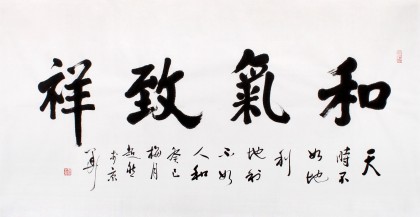 和氣致祥
天
時不
如地
利
地利
不如
人和
癸巳
梅月
超然
於京
華